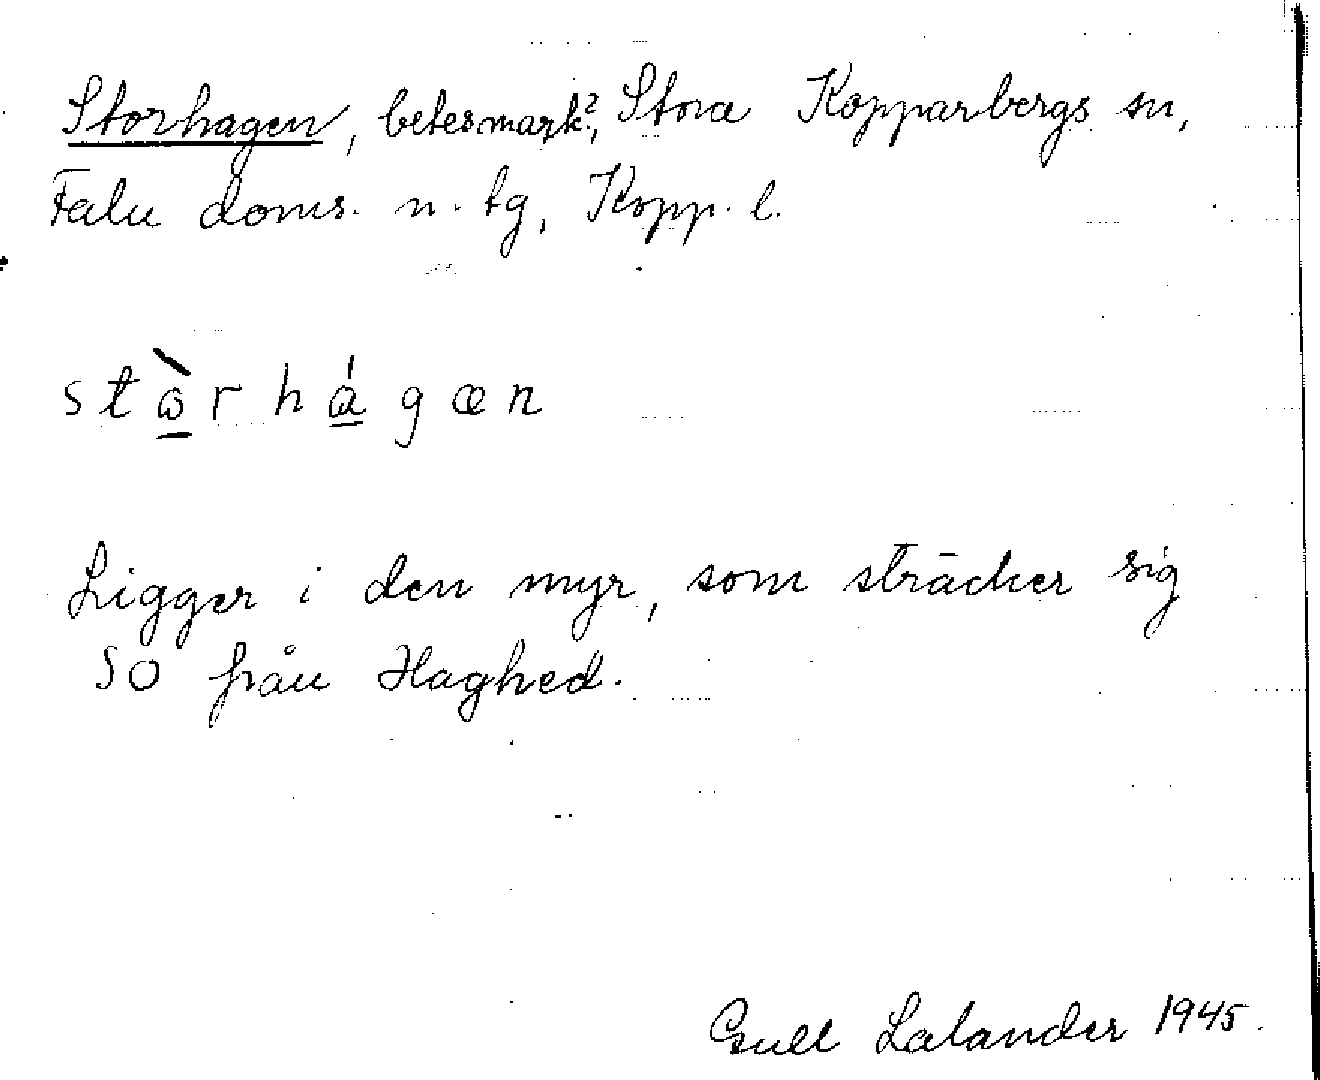 Storhagen, betesmark?, Stora Kopparbergs sn,
Falu doms. n. tg, Kopp. l.
stὼ̲rhá̲gœn
Ligger i den myr, som sträcker sig
SO från Haghed.
Gull Lalander 1945.